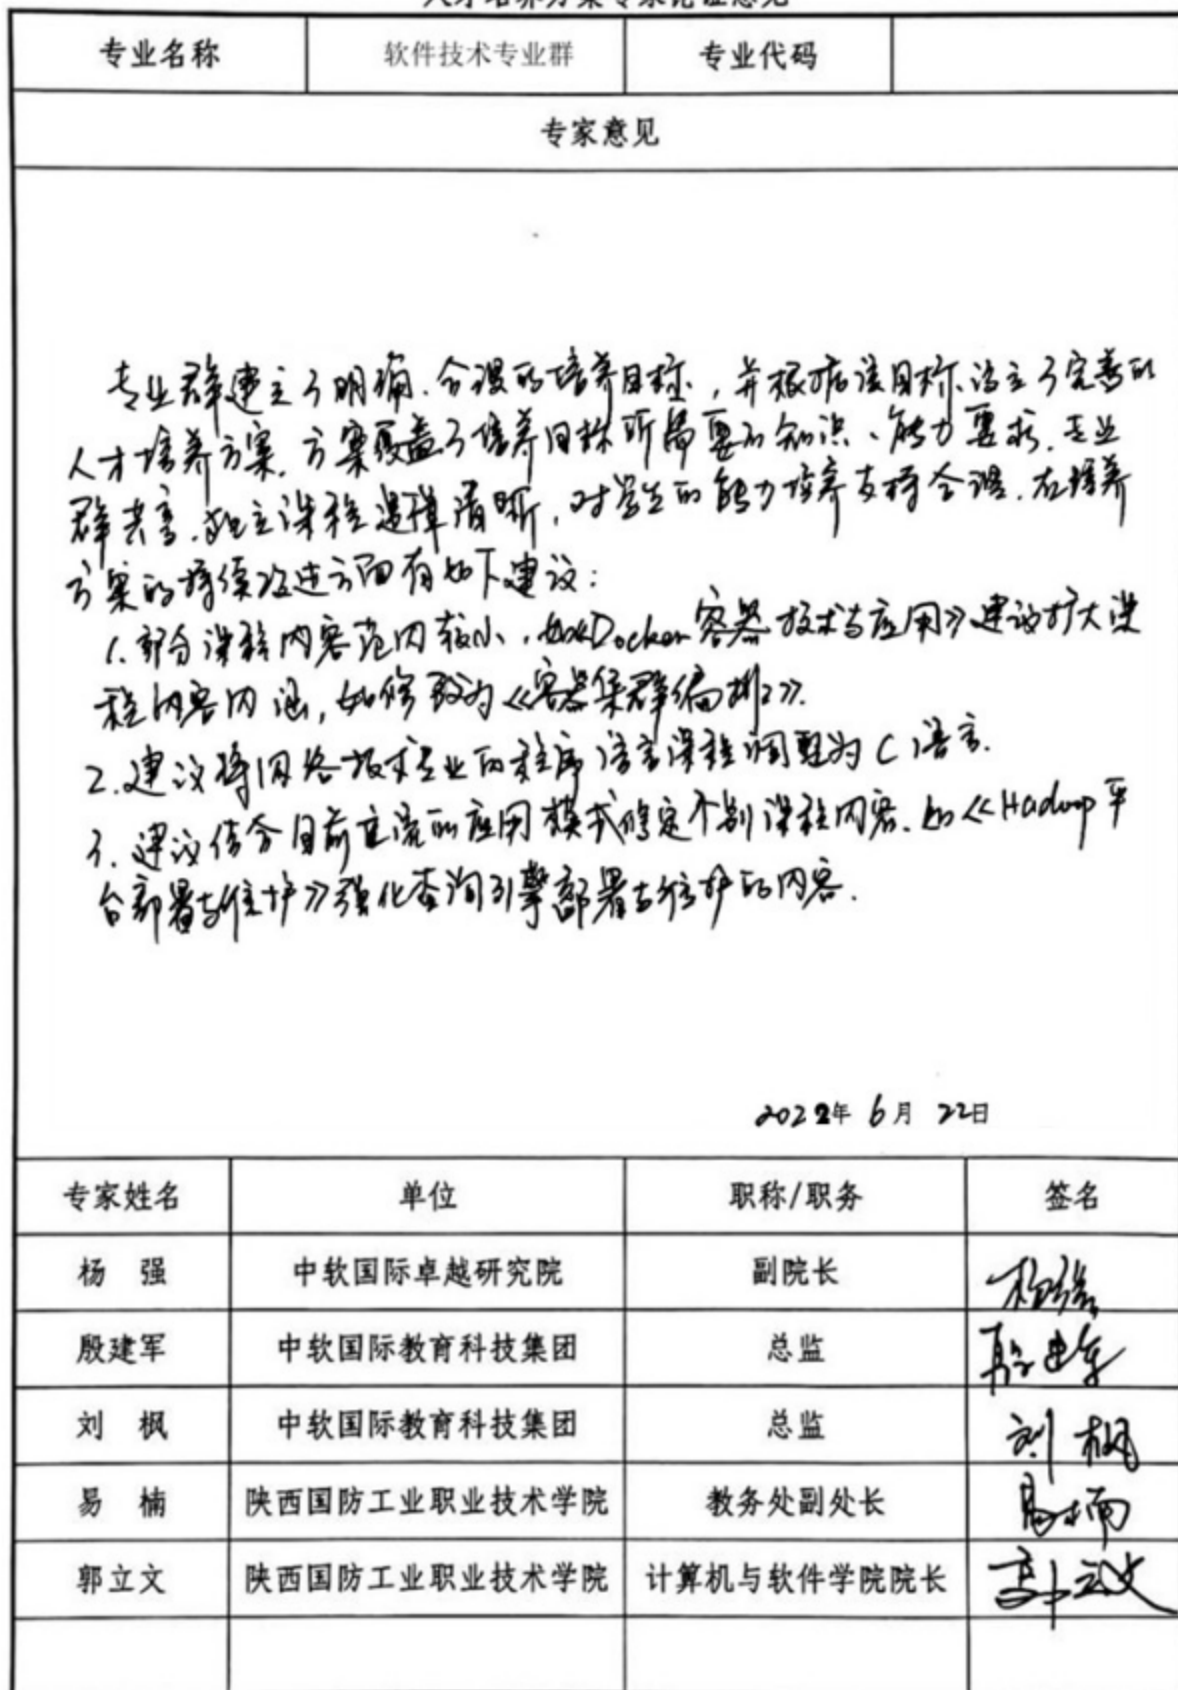 人才培养方案专家论证意见
专业名称 软件技术专业群 专业代码
专家意见
专业群建立了明确、合理的培养目标，并根据该目标设立了完善的
人才培养方案。方案覆盖了培养目标所需要的知识、能力要求。专业
群共享、独立课程逻辑清晰，对学生的能力培养支持合理。在培养
方案的持续改进方面有如下建议：
1. 部分课程内容范围较小，如《Docker容器技术与应用》建议扩大课
程内容内涵，如修改为《容器集群编排》。
2. 建议将网络技术专业的程序语言课程调整为C语言.
3. 建议结合目前主流的应用模式确定个别课程内容. 如《Hadoop平
台部署与维护》强化查询引擎部署与维护的内容.
2022年 6月 22日
专家姓名 单位 职称/职务 签名
杨 强 中软国际卓越研究院 副院长 杨强
殷建军 中软国际教育科技集团 总监 殷建军
刘 枫 中软国际教育科技集团 总监 刘枫
易 楠 陕西国防工业职业技术学院 教务处副处长 易楠
郭立文 陕西国防工业职业技术学院 计算机与软件学院院长 郭立文